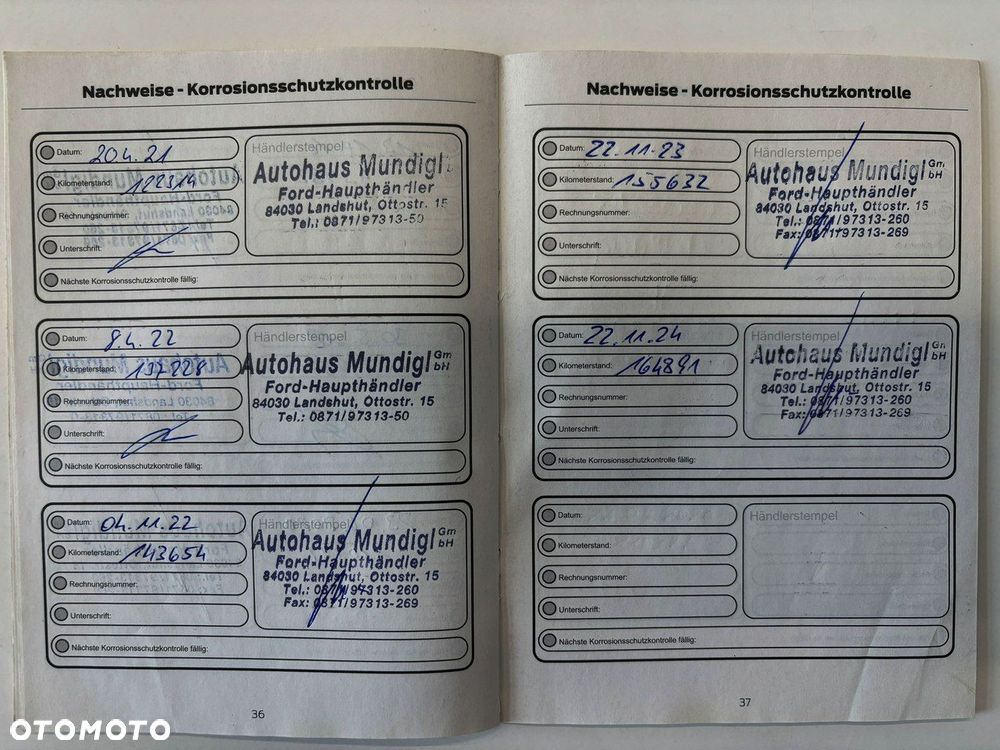 Nachweise - Korrosionsschutzkontrolle
Datum: 20.4.21
Kilometerstand:
Rechnungsnummer:
Unterschrift:
Nächste Korrosionsschutzkontrolle fällig:
Händlerstempel
Autohaus Mundigl
Ford-Haupthändler
84030 Landshut, Ottostr. 15
Tel.: 0871/97313-50
Datum: 8.4.22
Kilometerstand: 137228
Rechnungsnummer:
Unterschrift:
Nächste Korrosionsschutzkontrolle fällig:
Händlerstempel
Autohaus Mundigl GmbH
Ford-Haupthändler
84030 Landshut, Ottostr. 15
Tel.: 0871/97313-50
Datum: 04.11.22
Kilometerstand: 143654
Rechnungsnummer:
Unterschrift:
Nächste Korrosionsschutzkontrolle fällig:
Händlerstempel
Autohaus Mundigl GmbH
Ford-Haupthändler
84030 Landshut, Ottostr. 15
Tel.: 0871/97313-260
Fax: 0871/97313-269
36
Nachweise - Korrosionsschutzkontrolle
Datum: 22.11.23
Kilometerstand: 155632
Rechnungsnummer:
Unterschrift:
Nächste Korrosionsschutzkontrolle fällig:
Händlerstempel
Autohaus Mundigl GmbH
Ford-Haupthändler
84030 Landshut, Ottostr. 15
Tel.: 0871/97313-260
Fax: 0871/97313-269
Datum: 22.11.24
Kilometerstand: 164891
Rechnungsnummer:
Unterschrift:
Nächste Korrosionsschutzkontrolle fällig:
Händlerstempel
Autohaus Mundigl GmbH
Ford-Haupthändler
84030 Landshut, Ottostr. 15
Tel.: 0871/97313-260
Fax: 0871/97313-269
Datum:
Kilometerstand:
Rechnungsnummer:
Unterschrift:
Nächste Korrosionsschutzkontrolle fällig:
Händlerstempel
37
OTOMOTO